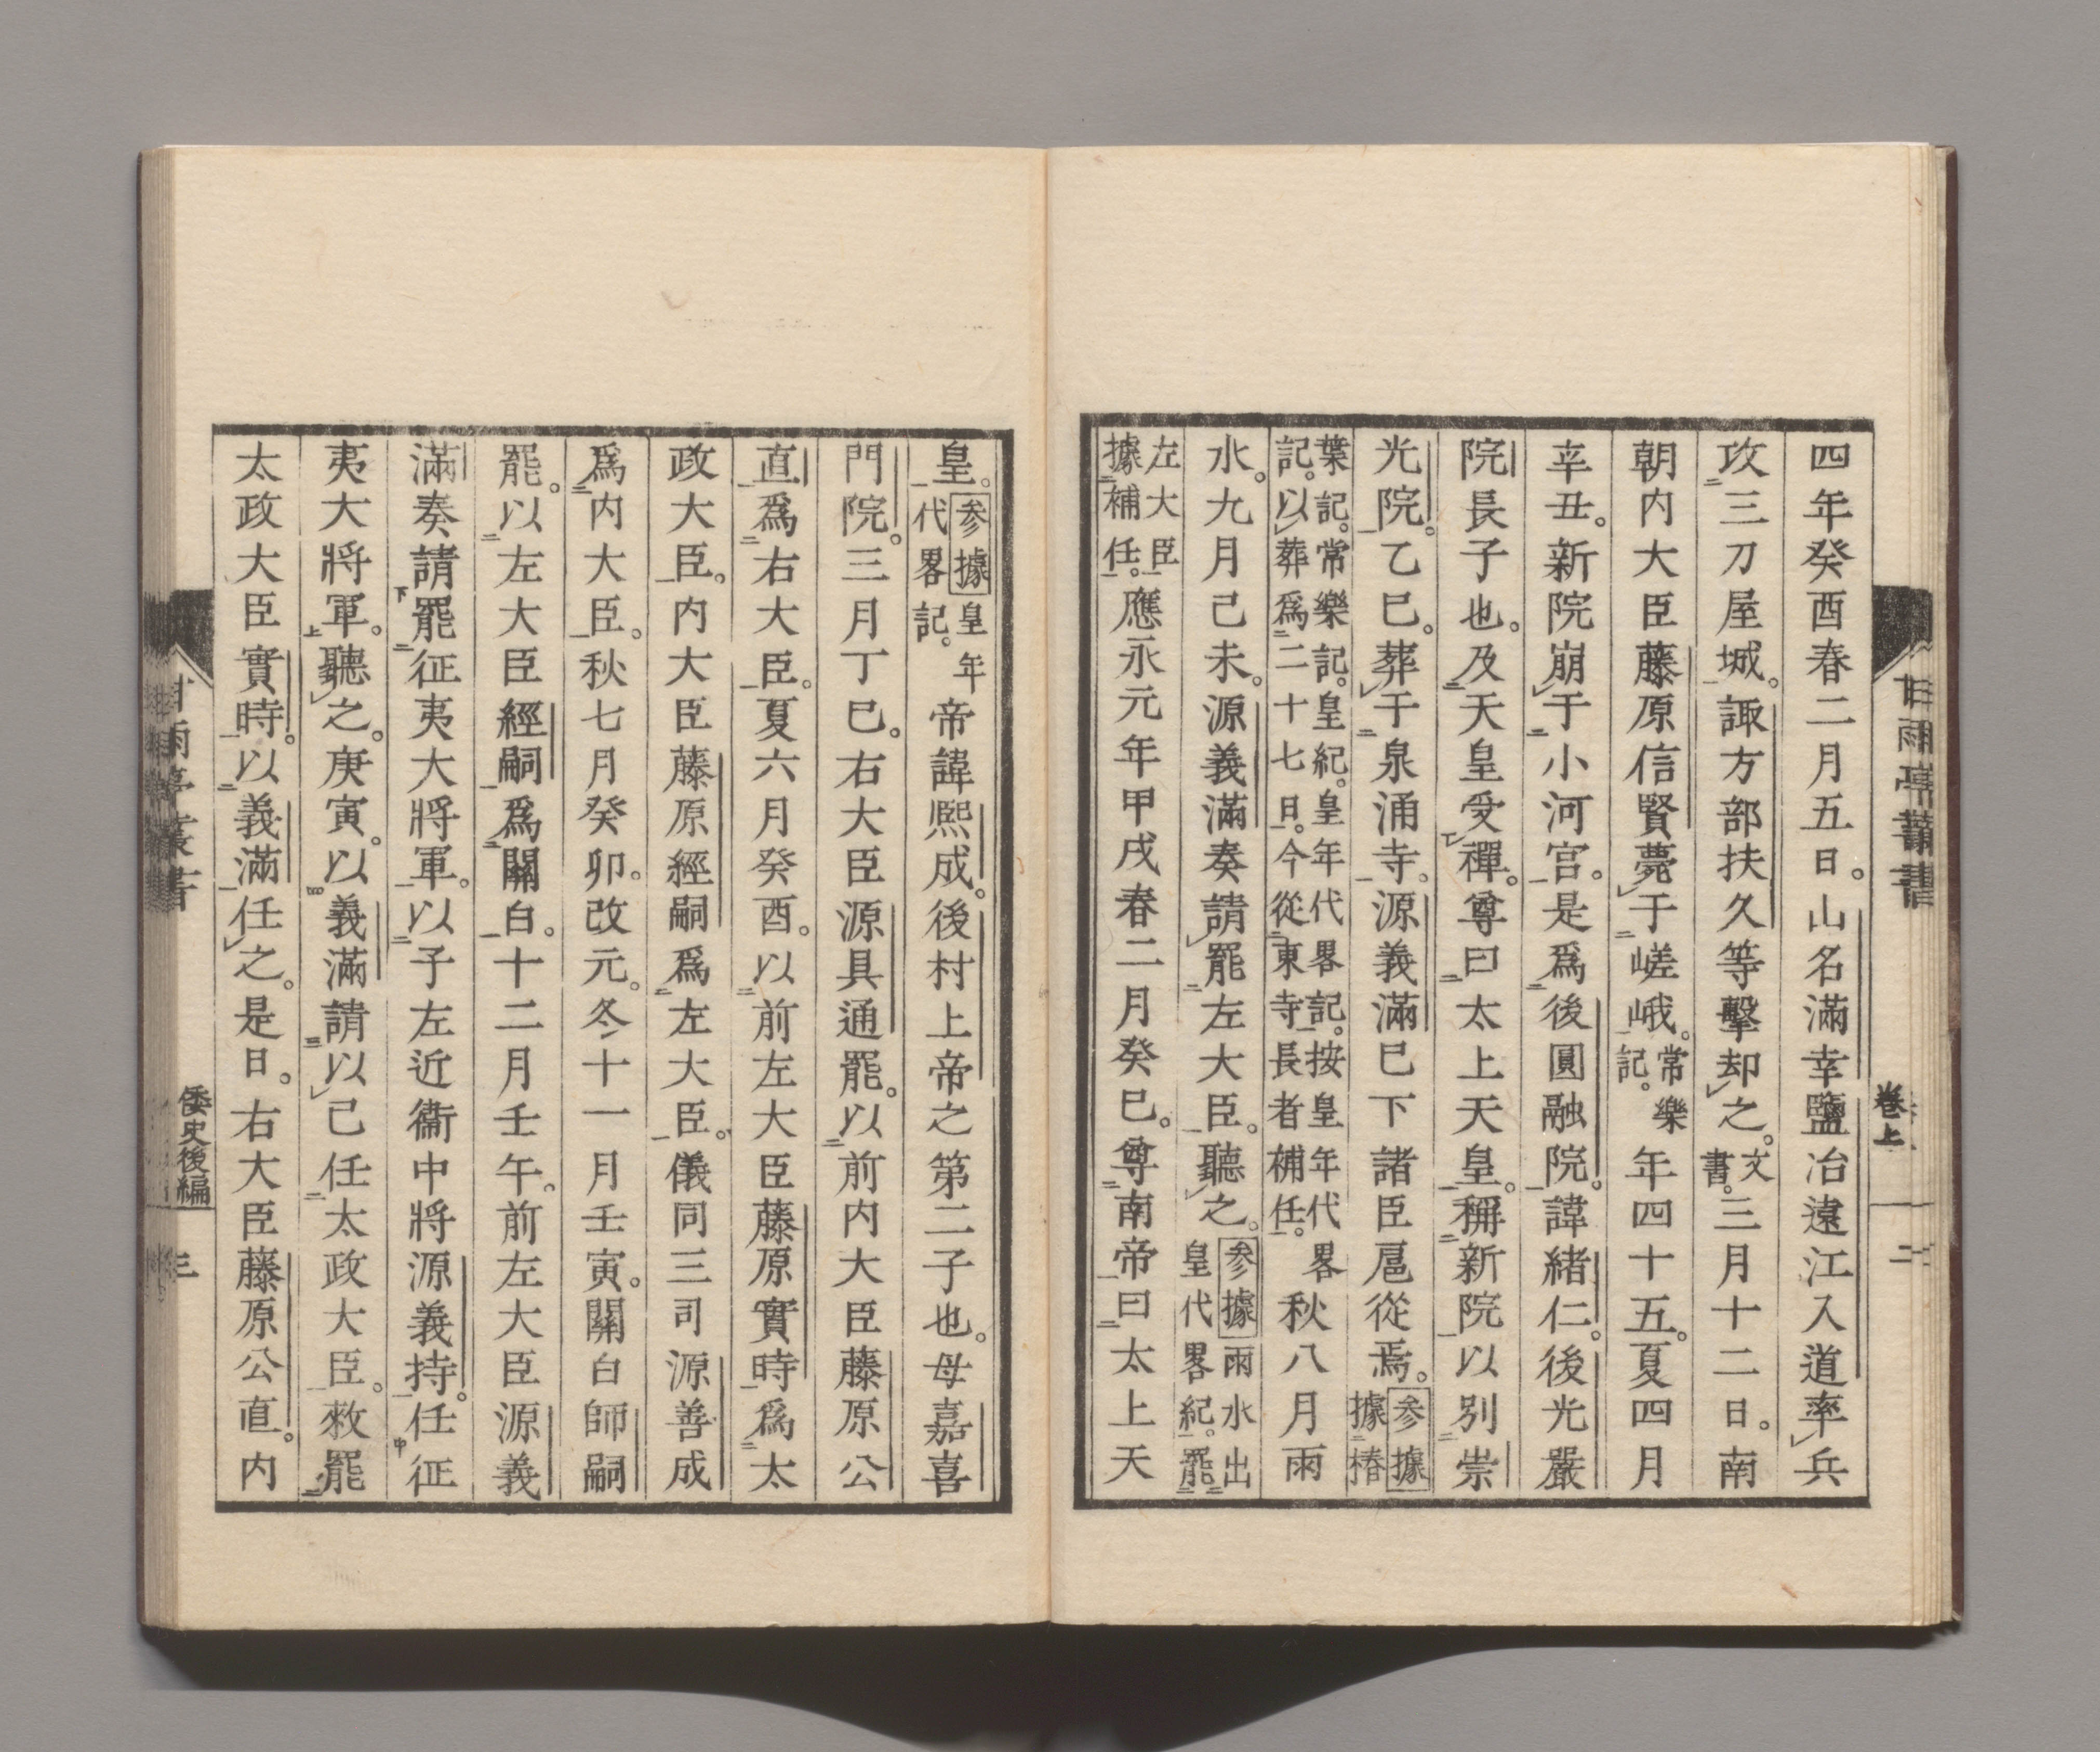 四年癸酉春二月五日。山名滿幸鹽冶遠江入道率兵
攻三刀屋城。諏方部扶久等擊却之。文書。三月十二日。南
朝内大臣藤原信賢薨于嵯峨。常樂記。年四十五。夏四月
辛丑。新院崩于小河宮。是爲後圓融院。諱緒仁。後光嚴
院長子也。及天皇受禪。尊曰太上天皇。稱新院以別崇
光院。乙巳。葬于泉涌寺。源義滿巳下諸臣扈從焉。參據據椿
葉記。常樂記。皇紀。皇年代畧記。按皇年代畧
記。以葬爲二十七日。今從東寺長者補任。秋八月雨
水。九月己未。源義滿奏請罷左大臣。聽之。參據雨水出皇代畧紀。罷
左大臣據補任。應永元年甲戌春二月癸巳。尊南帝曰太上天
皇。參據皇年代畧記。帝諱熙成。後村上帝之第二子也。母嘉喜
門院。三月丁巳。右大臣源具通罷。以前内大臣藤原公
直爲右大臣。夏六月癸酉。以前左大臣藤原實時爲太
政大臣。内大臣藤原經嗣爲左大臣。儀同三司源善成
爲内大臣。秋七月癸卯。改元。冬十一月壬寅。關白師嗣
罷。以左大臣經嗣爲關白。十二月壬午。前左大臣源義
滿奏請罷征夷大將軍。以子左近衞中將源義持。任征
夷大將軍。聽之。庚寅。以義滿請以己任太政大臣。敕罷
太政大臣實時。以義滿任之。是日。右大臣藤原公直。内
甘雨亭叢書
卷上
二
甘雨亭叢書
倭史後編
三